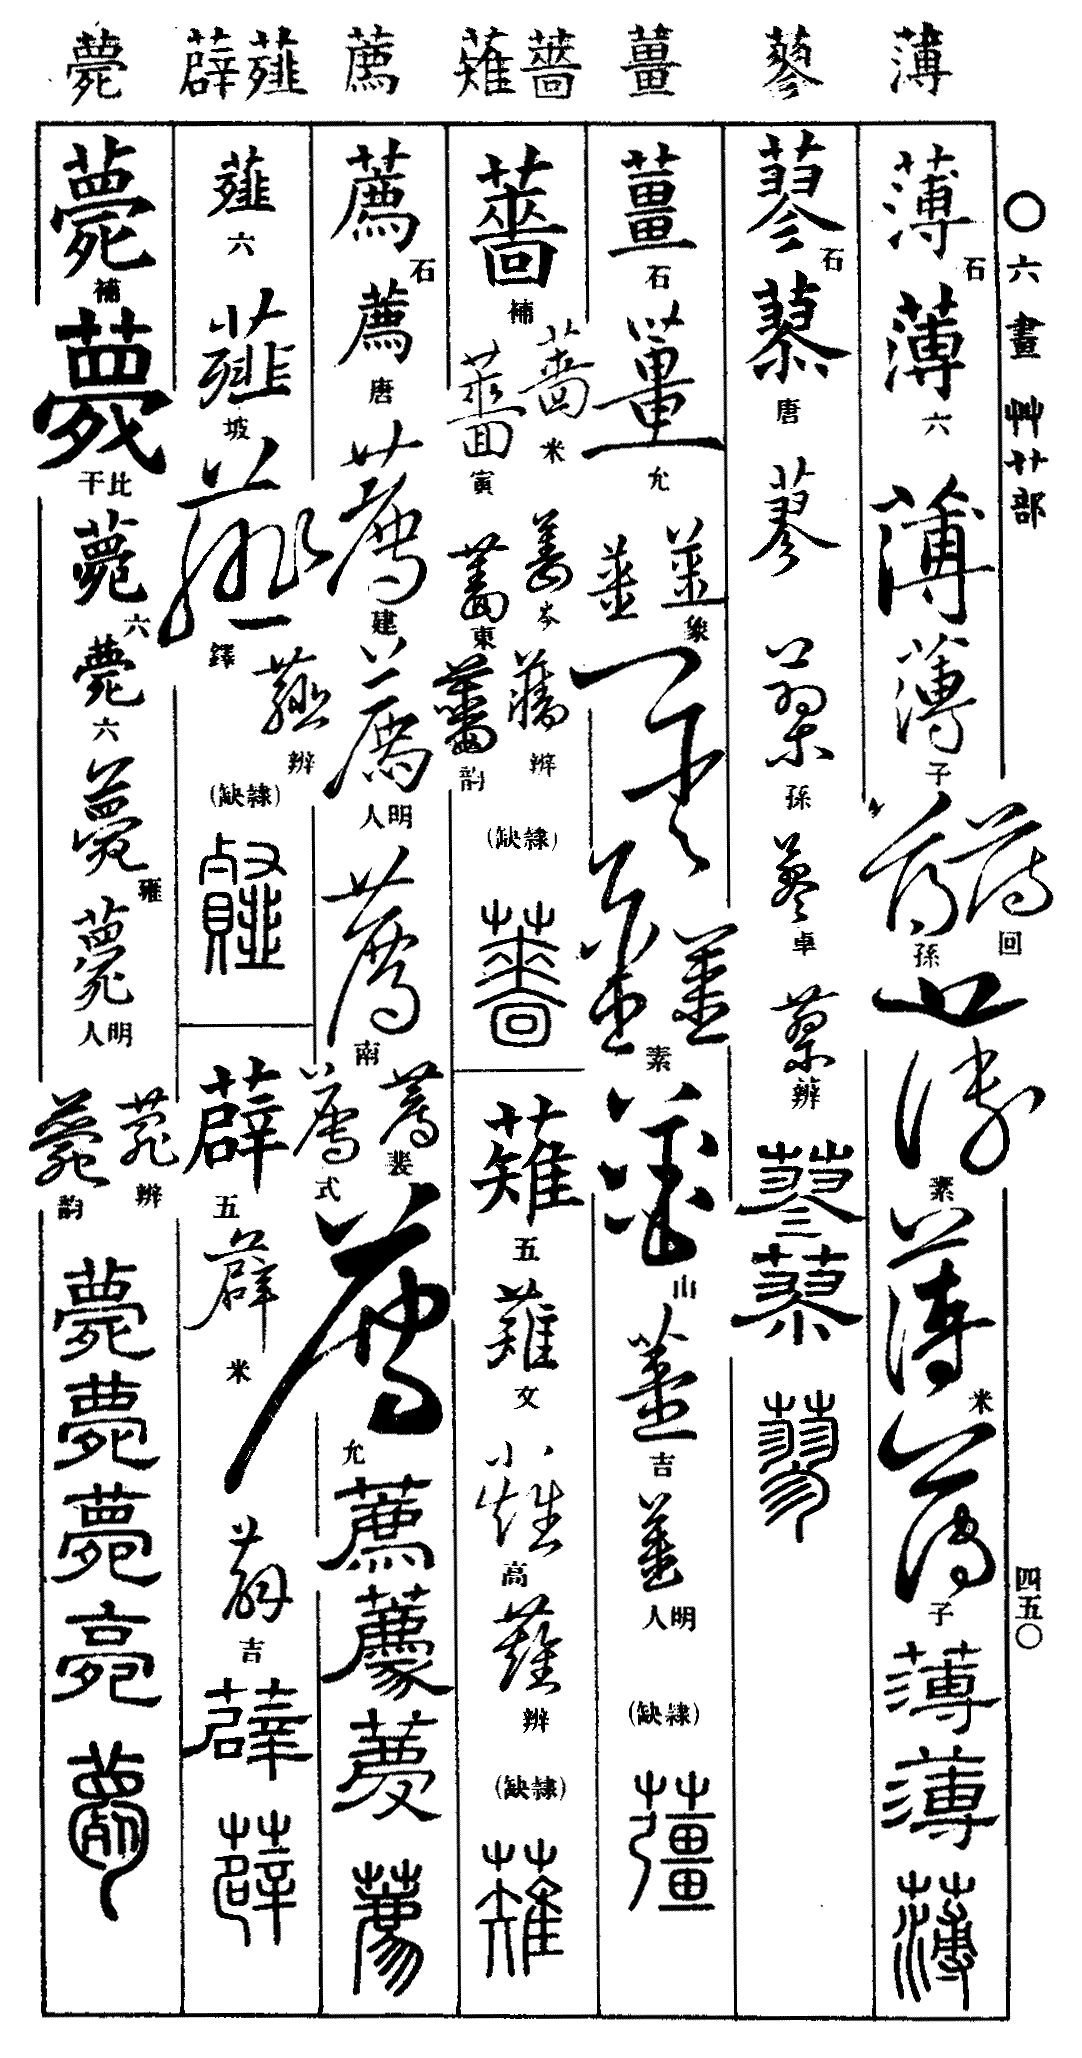 薄 蓼 薑 薔 薙 薦 薤 薜 薨
○六畫 艸艹部
四五〇
薄 石
薄 六
薄
薄 子
薄 回
薄 孫
薄 素
薄 米
薄 子
薄
薄
薄
蓼 石
蓼 唐
蓼
蓼 孫
蓼 卓
蓼 辨
蓼
蓼
蓼
薑 石
薑 允
薑
薑 象
薑
薑
薑 素
薑 山
薑 吉
薑 明人
(隸缺)
薑
薔 補
薔 米
薔 寅
薔 岑
薔 東
薔 辨
薔 韵
(隸缺)
薔
薙 五
薙 文
薙 高
薙 辨
(隸缺)
薙
薦 石
薦 唐
薦 建
薦 明人
薦 南
薦 裴
薦 式
薦 允
薦
薦
薦
薦
薤 六
薤 坡
薤 鐸
薤 辨
(隸缺)
薤
薜 五
薜 米
薜 吉
薜
薜
薨 補
薨 比干
薨 六
薨 六
薨 雍
薨 明人
薨 辨
薨 韵
薨
薨
薨
薨
薨